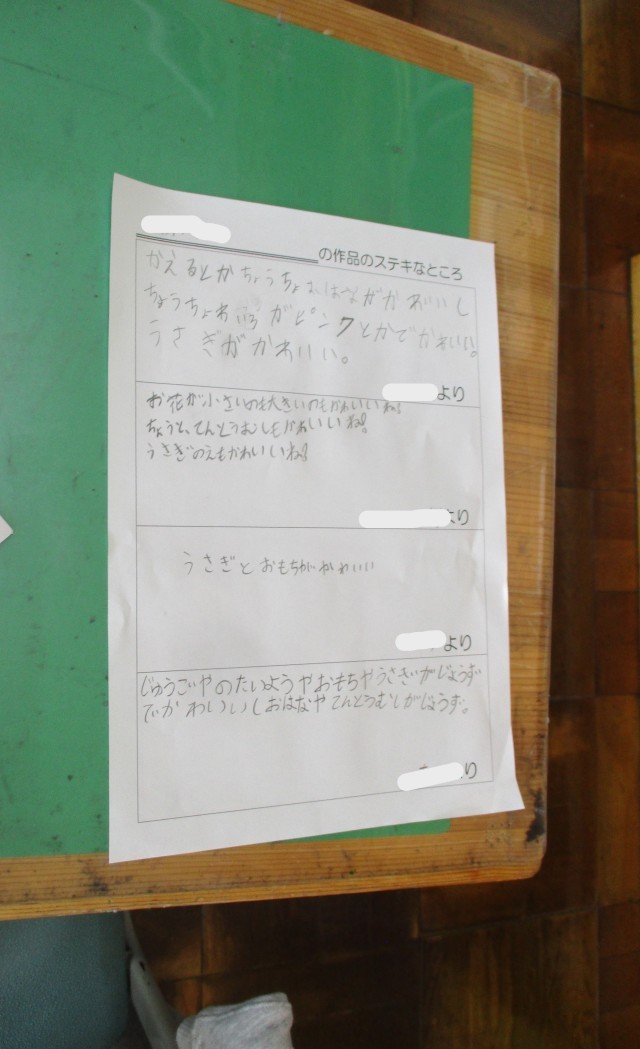 の作品のステキなところ
かえるとかちょうちょおはながかわいいし
ちょうちょわいろがピンクとかでかわいい。
うさぎがかわいい。
より
お花が小さいのも大きいのもかわいいね!
ちょうと、てんとうむしもかわいいね!
うさぎのえもかわいいね!
より
うさぎとおもちがかわいい
より
じゅうごやのたいようやおもちやうさぎがじょうず
でかわいいしおはなやてんとうむしがじょうず。
より